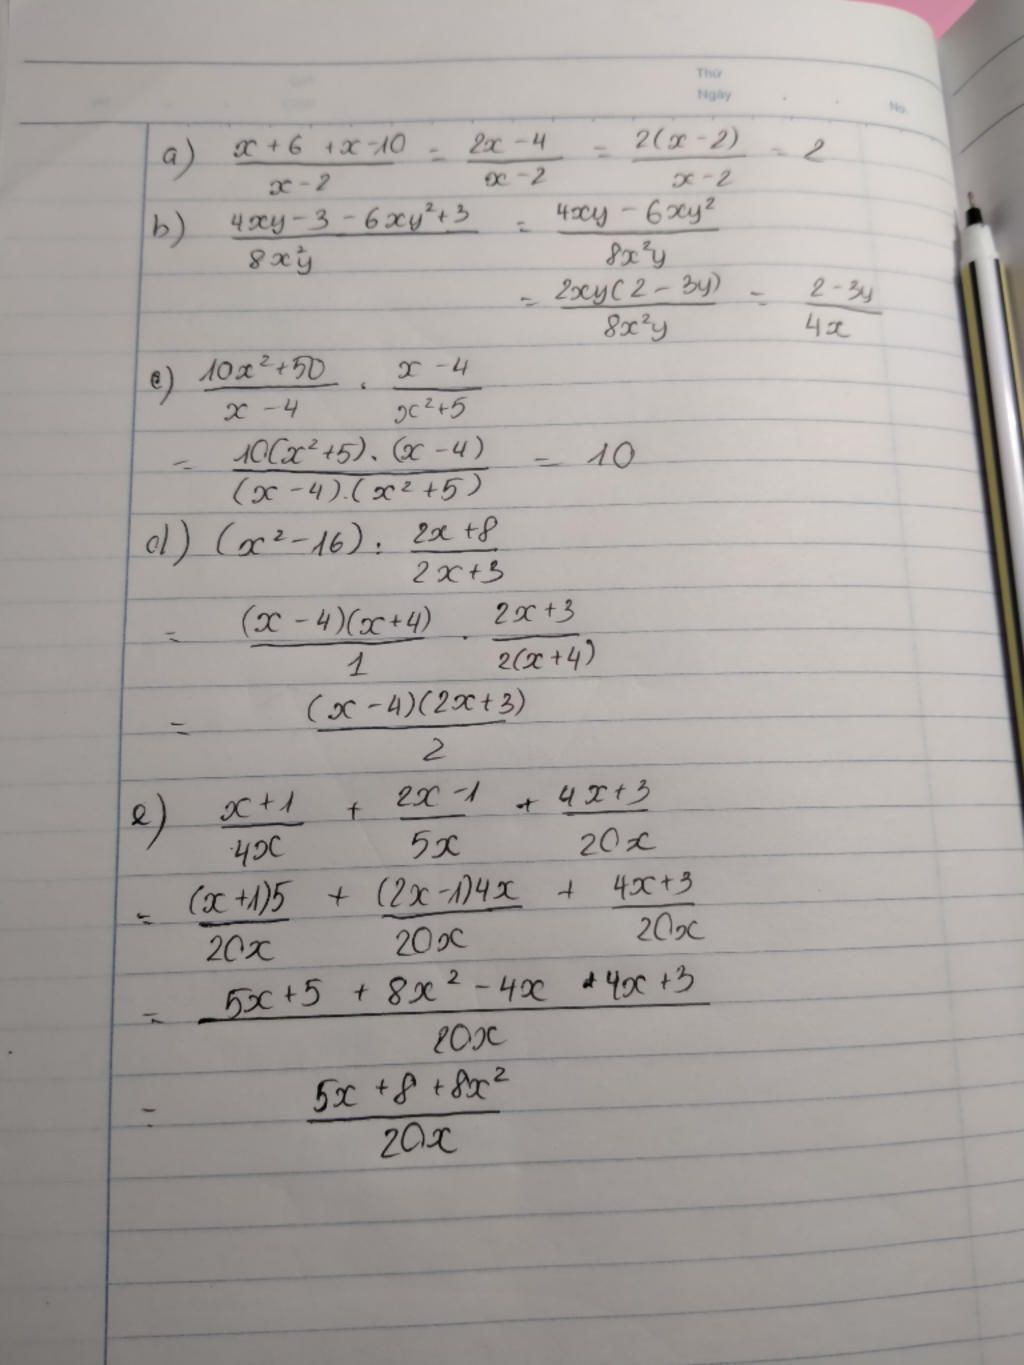 Thứ
Ngày
No.
a) (x + 6 + x - 10)/(x - 2) = (2x - 4)/(x - 2) = (2(x - 2))/(x - 2) = 2
b) (4xy - 3 - 6xy² + 3)/(8x²y) = (4xy - 6xy²)/(8x²y)
= (2xy(2 - 3y))/(8x²y) = (2 - 3y)/(4x)
c) (10x² + 50)/(x - 4) . (x - 4)/(x² + 5)
= (10(x² + 5) . (x - 4))/((x - 4).(x² + 5)) = 10
d) (x² - 16) : (2x + 8)/(2x + 3)
= ((x - 4)(x + 4))/1 . (2x + 3)/(2(x + 4))
= ((x - 4)(2x + 3))/2
e) (x + 1)/(4x) + (2x - 1)/(5x) + (4x + 3)/(20x)
= ((x + 1)5)/(20x) + ((2x - 1)4x)/(20x) + (4x + 3)/(20x)
= (5x + 5 + 8x² - 4x + 4x + 3)/(20x)
= (5x + 8 + 8x²)/(20x)